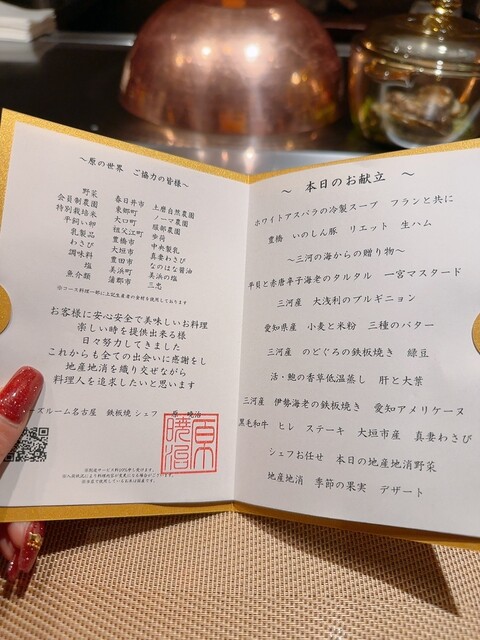 ～原の世界　ご協力の皆様～
野菜　春日井市　土磨自然農園
会員制農園　東郷町　ノーマ農園
特別栽培米　大口町　服部農園
平飼い卵　祖父江町　歩荷
乳製品　豊橋市　中央製乳
わさび　大垣市　真妻わさび
調味料　豊田市　なのはな醤油
塩　美浜町　美浜の塩
魚介類　蒲郡市　三忠
※コース料理一部に上記生産者の食材を使用しております
お客様に安心安全で美味しいお料理
楽しい時を提供出来る様
日々努力してきました
これからも全ての出会いに感謝をし
地産地消を織り交ぜながら
料理人を追求したいと思います
ーズルーム名古屋　鉄板焼 シェフ　原　暁治
原暁治
～　本日のお献立　～
ホワイトアスパラの冷製スープ　フランと共に
豊橋　いのしし豚　リエット　生ハム
～三河の海からの贈り物～
平貝と赤唐辛子海老のタルタル　一宮マスタード
三河産　大浅利のブルギニョン
愛知県産　小麦と米粉　三種のバター
三河産　のどぐろの鉄板焼き　緑豆
活・鮑の香草低温蒸し　肝と大葉
三河産　伊勢海老の鉄板焼き　愛知アメリケーヌ
黒毛和牛　ヒレ　ステーキ　大垣市産　真妻わさび
シェフお任せ　本日の地産地消野菜
地産地消　季節の果実　デザート